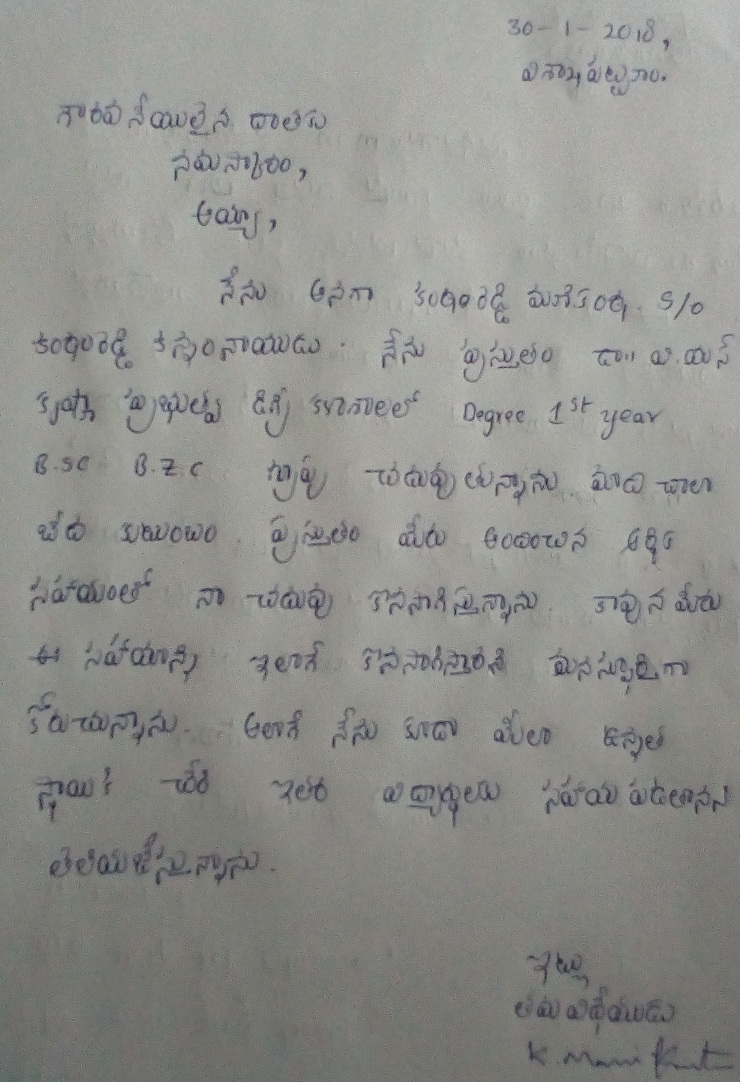 30-1-2018,
విశాఖపట్నం.
గౌరవనీయులైన దాతకు
నమస్కారం,
అయ్యా,
నేను అనగా కంఠంరెడ్డి మణికంఠ. S/O
కంఠంరెడ్డి కన్నంనాయుడు. నేను ప్రస్తుతం డా.. వి.యస్
కృష్ణా ప్రభుత్వ డిగ్రీ కళాశాలలో Degree 1st year
B.sc B.Z.C గ్రూపు చదువుతున్నాను. మాది చాలా
బేద కుటుంబం. ప్రస్తుతం మీరు అందించిన ఆర్థిక
సహాయంతో నా చదువు కొనసాగిస్తున్నాను. కావున మీరు
ఈ సహాయాన్ని ఇలాగే కొనసాగిస్తారని మనస్ఫూర్తిగా
కోరుచున్నాను. అలాగే నేను కూడా మీలా ఉన్నత
స్థాయికి చేరి ఇతర విద్యార్థులకు సహాయ పడతానని
తెలియజేస్తున్నాను.
ఇట్లు
తమ విధేయుడు
K. Mani Kanta